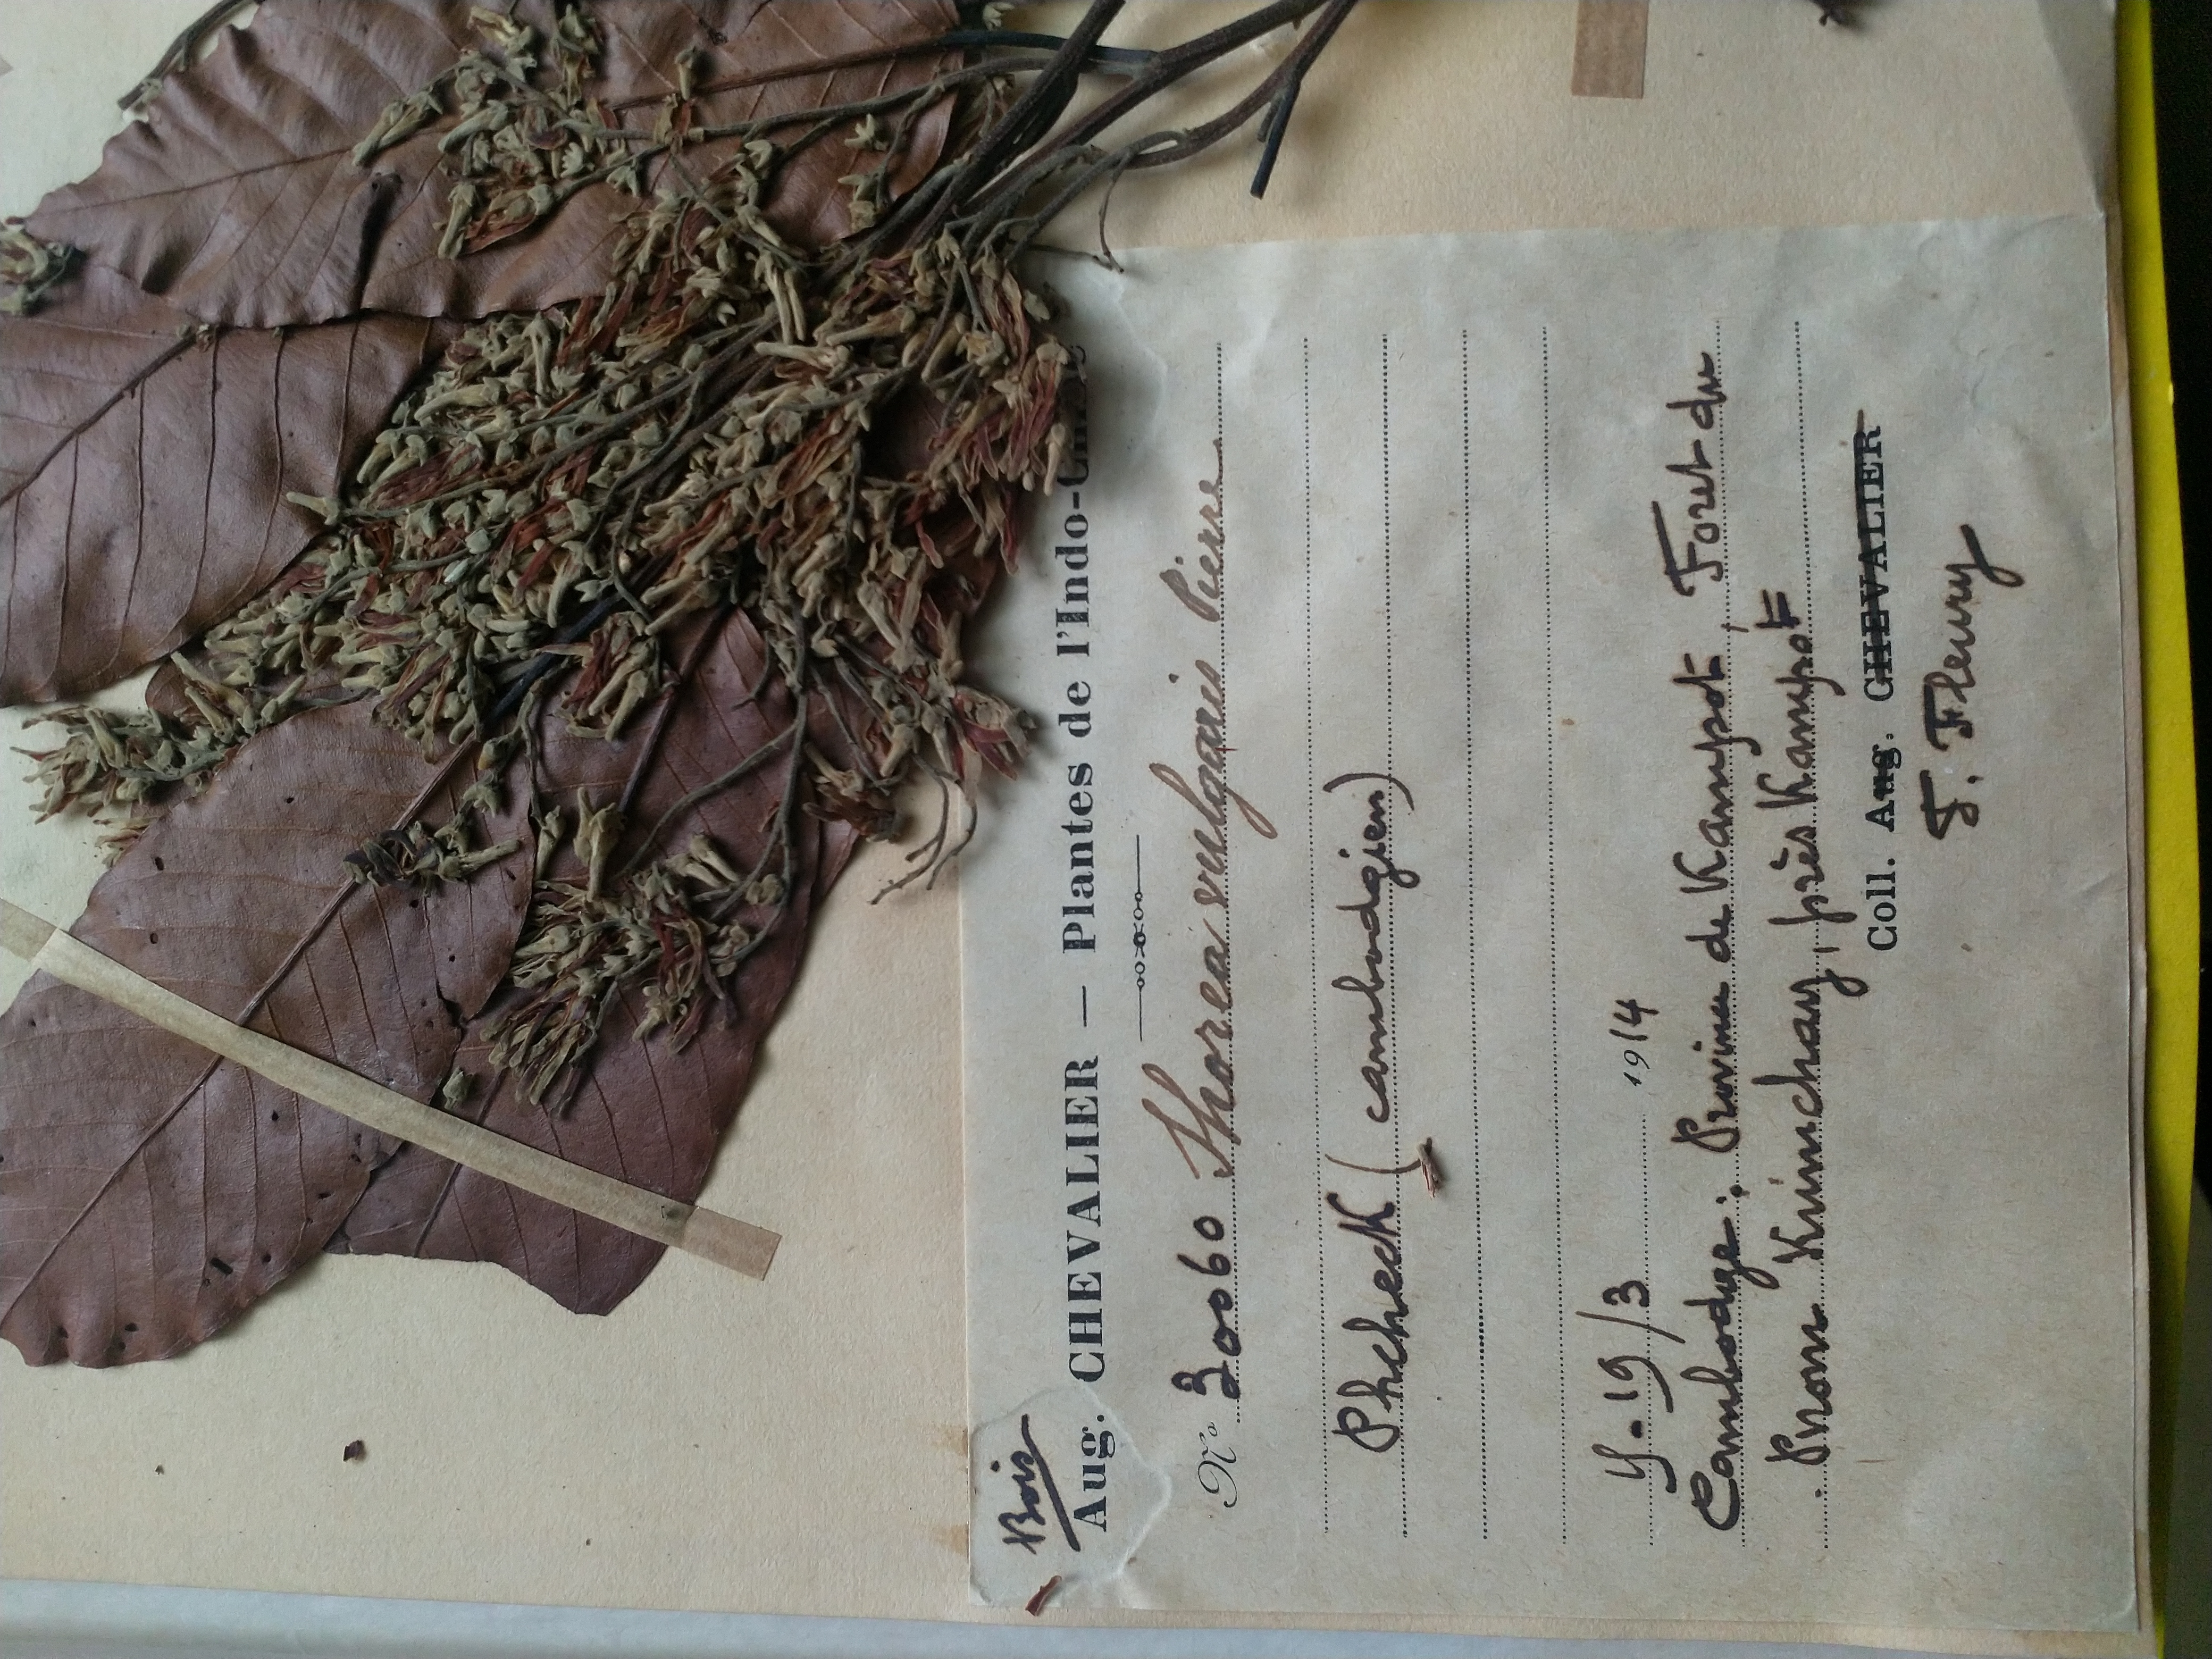 Bois
Aug. CHEVALIER — Plantes de l'Indo-Chine
No 30060 Shorea vulgaris Pierre
Phcheck (cambodgien)
19/3 1914
Cambodge: Province de Kampot, Foret du
Pnom Krimchay, près Kampot
Coll. Aug. CHEVALIER
F. Fleury